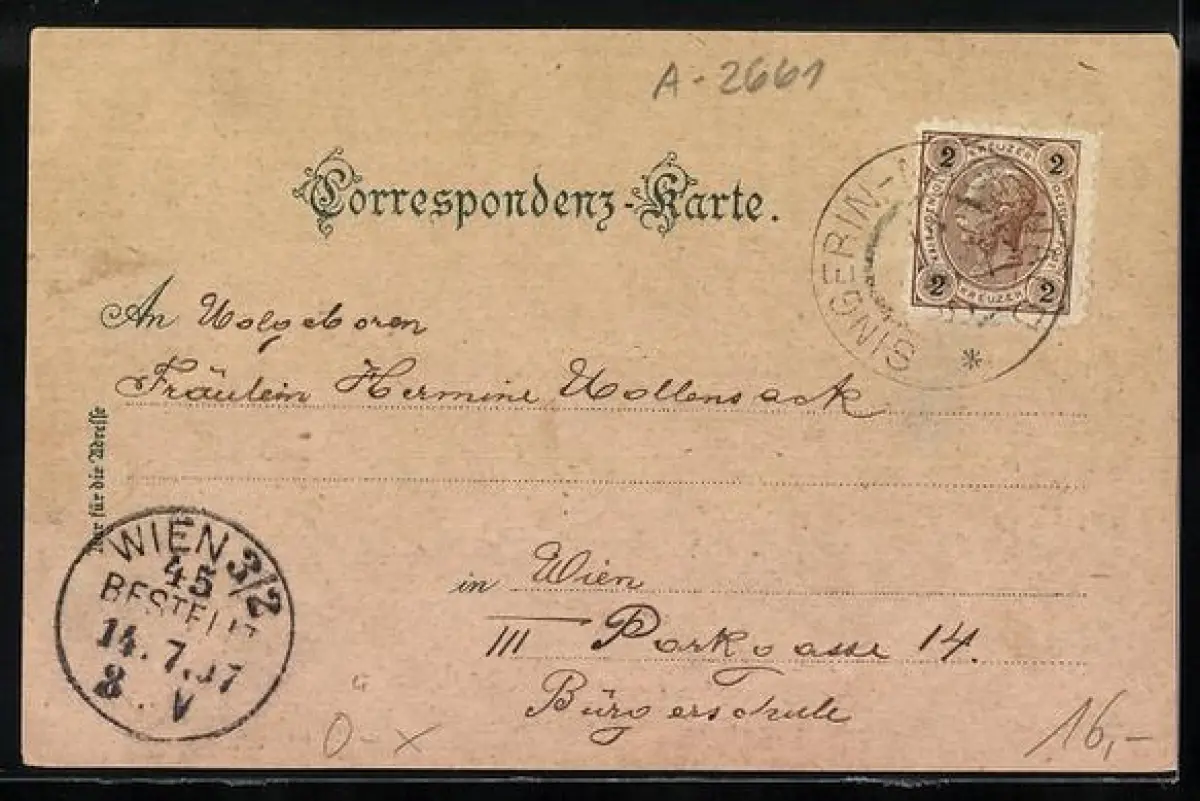 A-2661
Correspondenz-Karte.
2 KREUZER 2
2 KREUZER 2
SINGERIN-
*
An Wolgeboren
Fräulein Hermine Wollensack
Nur für die Adresse
WIEN 3/2
45
BESTELLT
14. 7. 97
8 . V
in Wien
III Parkgasse 14.
Bürgerschule
0-x
16,-